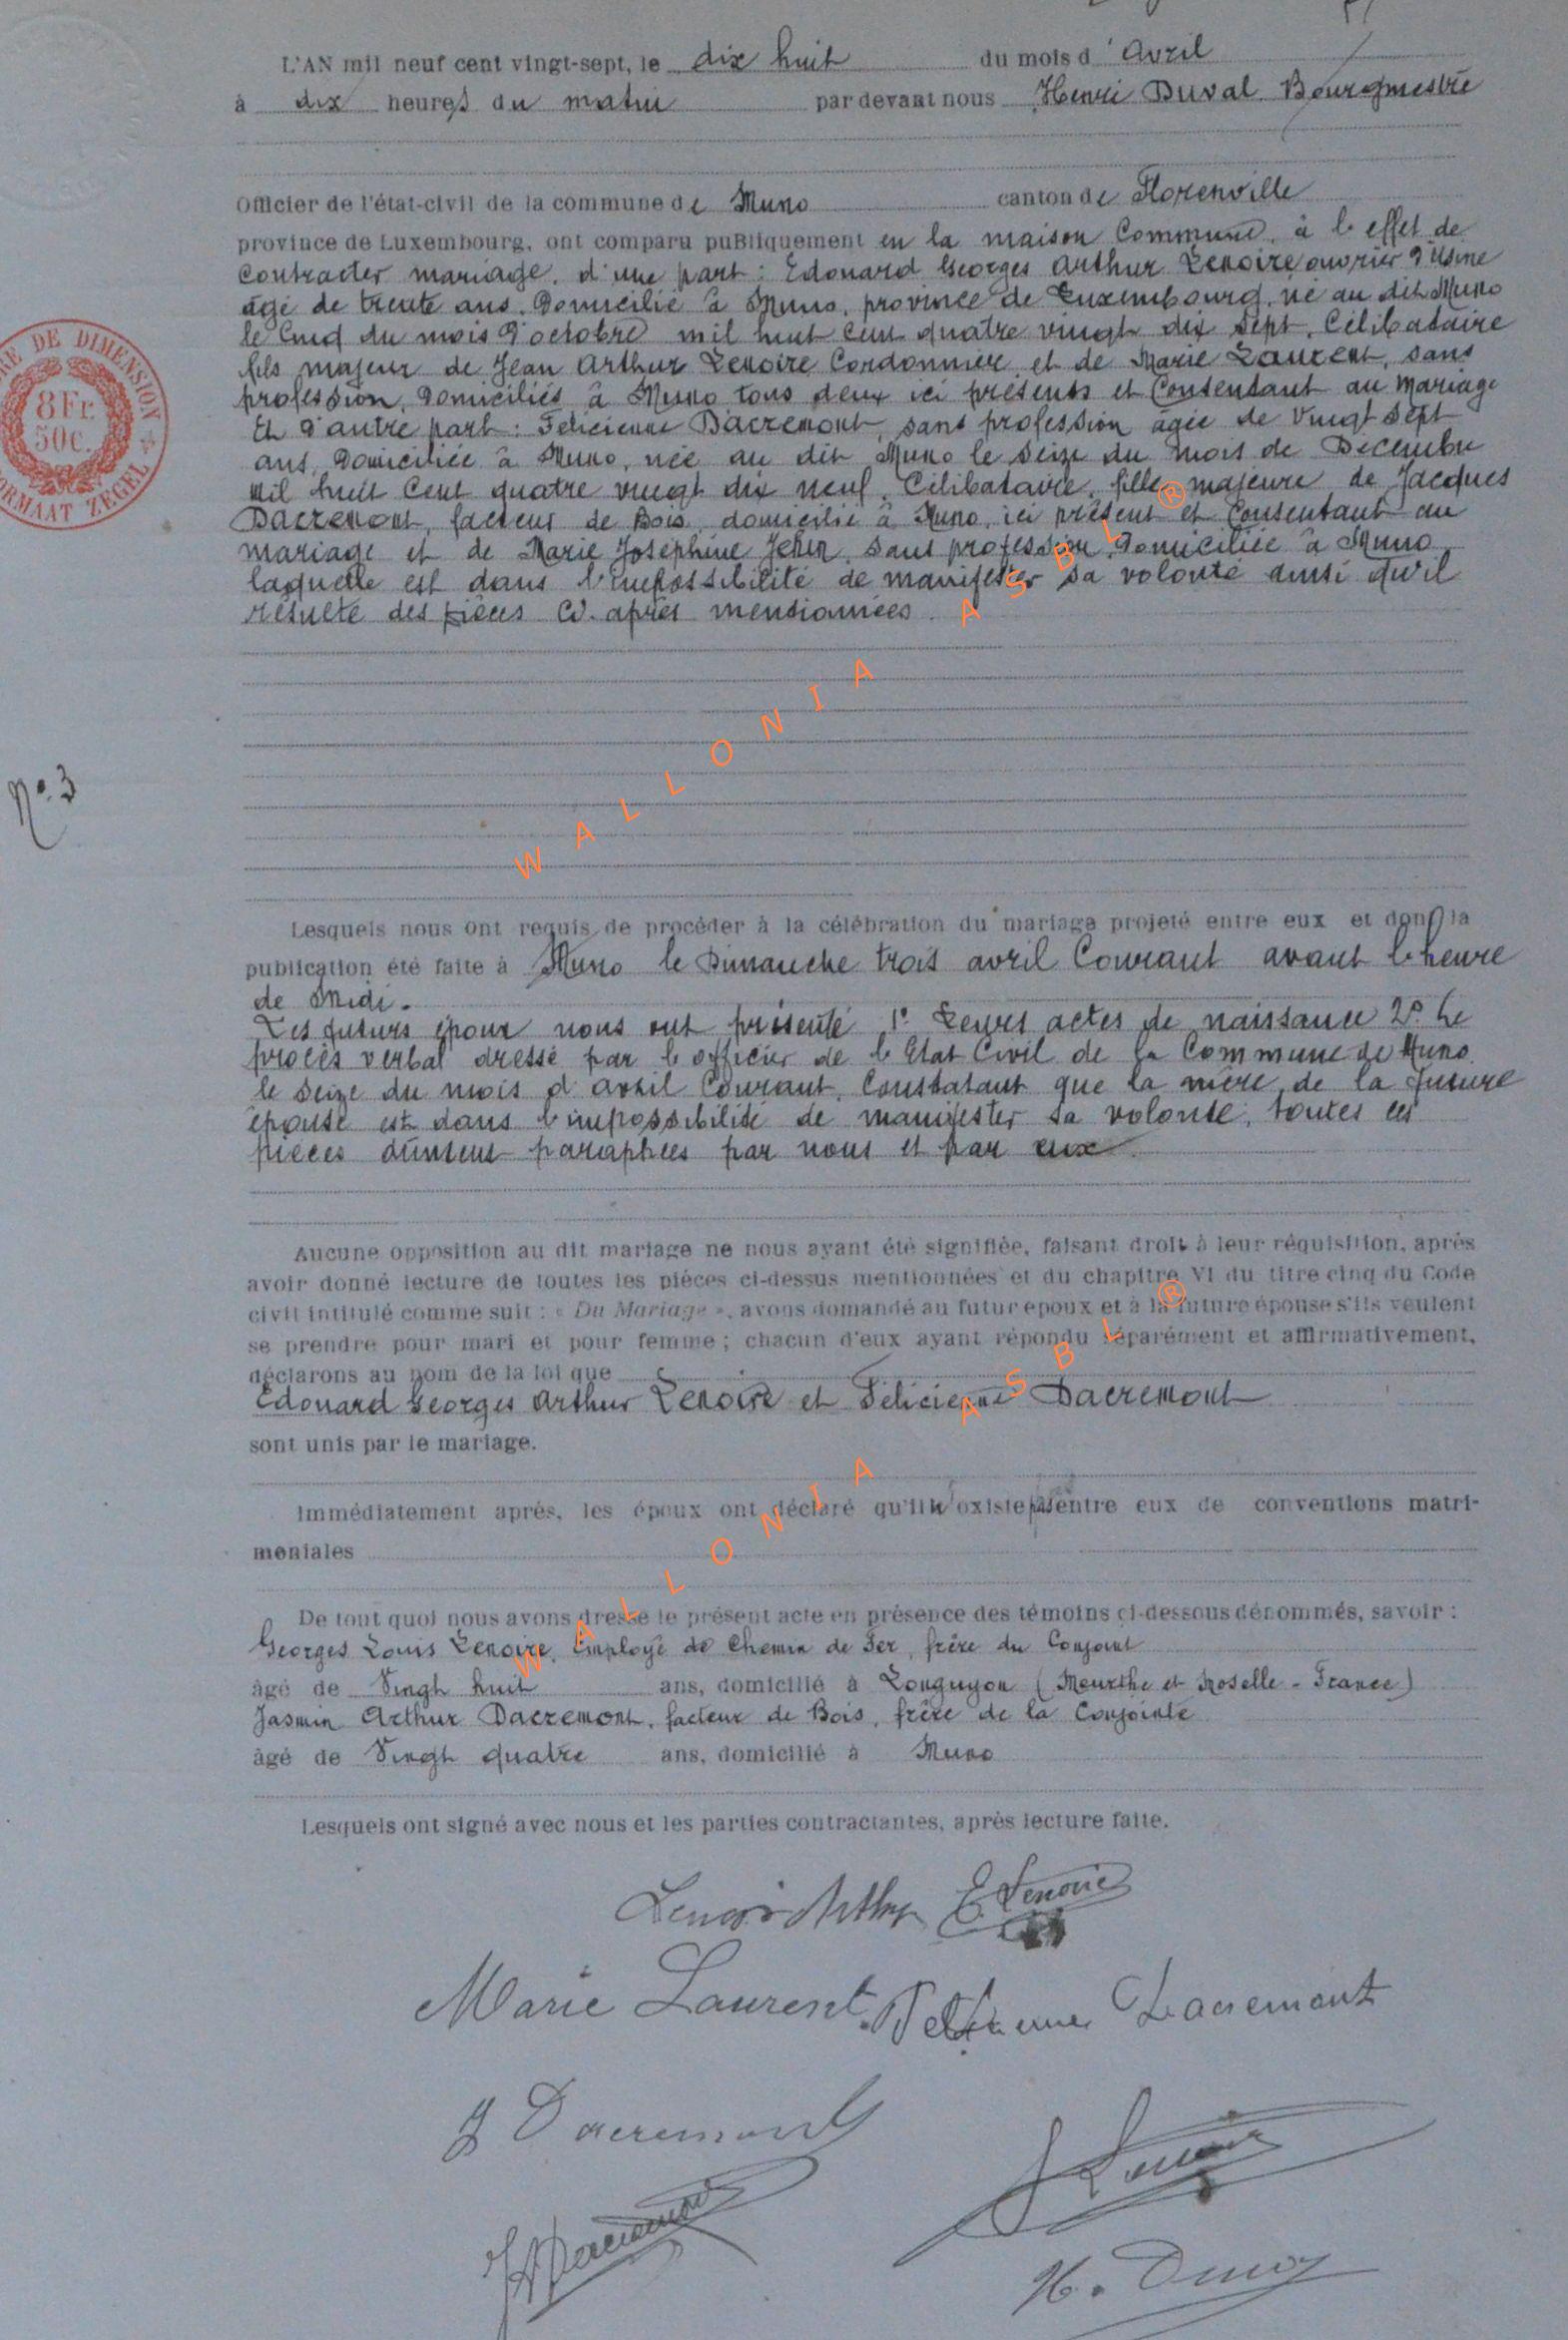 L'AN mil neuf cent vingt-sept, le dix huit du mois d'Avril
à dix heures du matin par devant nous Henri Duval Bourgmestre
Officier de l'état-civil de la commune de Muno canton de Florenville
province de Luxembourg, ont comparu publiquement en la maison Commune, à l'effet de
Contracter mariage, d'une part : Edouard Georges Arthur Lenoire ouvrier d'Usine
âgé de trente ans, Domicilié à Muno, province de Luxembourg, né au dit Muno
le Cinq du mois d'octobre mil huit cent quatre vingt dix sept, Célibataire
fils majeur de Jean Arthur Lenoire Cordonnier et de Marie Laurent, sans
profession, Domiciliés à Muno tous deux ici présents et Consentant au Mariage
Et d'autre part : Félicienne Dacremont, sans profession âgée de Vingt Sept
ans, Domiciliée à Muno, née au dit Muno le Seize du mois de Décembre
mil huit Cent quatre vingt dix neuf, Célibataire, fille majeure de Jacques
Dacremont, facteur de Bois, domicilié à Muno, ici présent et Consentant au
mariage et de Marie Joséphine Jehen, sans profession, Domiciliée à Muno
laquelle est dans l'impossibilité de manifester sa volonté ainsi qu'il
résulte des pièces ci-après mentionnées.
N° 3
Lesquels nous ont requis de procéder à la célébration du mariage projeté entre eux et dont la
publication été faite à Muno le Dimanche trois avril Courant avant l'heure
de Midi.
Les futurs époux nous ont présenté 1° Leurs actes de naissance 2° Le
procès verbal dressé par l'officier de l'Etat Civil de la Commune de Muno
le Seize du mois d'avril Courant, Constatant que la mère de la future
épouse est dans l'impossibilité de manifester sa volonté, toutes ces
pièces dûment paraphées par nous et par eux
Aucune opposition au dit mariage ne nous ayant été signifiée, faisant droit à leur réquisition, après
avoir donné lecture de toutes les pièces ci-dessus mentionnées et du chapitre VI du titre cinq du Code
civil intitulé comme suit : « Du Mariage », avons domandé au futur époux et à la future épouse s'ils veulent
se prendre pour mari et pour femme ; chacun d'eux ayant répondu séparément et affirmativement,
déclarons au nom de la loi que
Edouard Georges Arthur Lenoire et Félicienne Dacremont
sont unis par le mariage.
Immédiatement après, les époux ont déclaré qu'il n'existe pas entre eux de conventions matri-
moniales
De tout quoi nous avons dressé le présent acte en présence des témoins ci-dessous dénommés, savoir :
Georges Louis Lenoire, Employé de Chemin de Fer, frère du Conjoint
âgé de Vingt huit ans, domicilié à Longuyon (Meurthe et Moselle - France)
Jasmin Arthur Dacremont, facteur de Bois, frère de la Conjointe
âgé de Vingt quatre ans, domicilié à Muno
Lesquels ont signé avec nous et les parties contractantes, après lecture faite.
Lenoir Arthur E Lenoire
Marie Laurent Félicienne Dacremont
J Dacremont
Lenoir
JA Dacremont
H. Duval
8 Fr.
50c.
DE DIMENSION
FORMAAT ZEGEL
WALLONIA ASBL ®
WALLONIA ASBL ®